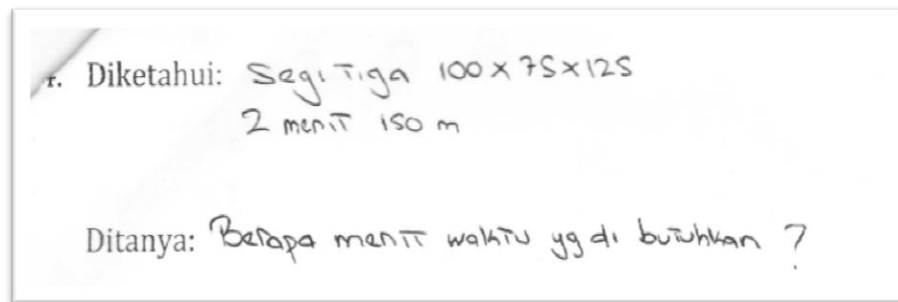 r. Diketahui: Segitiga 100 x 75 x 125
2 menit 150 m
Ditanya: Berapa menit waktu yg di butuhkan ?